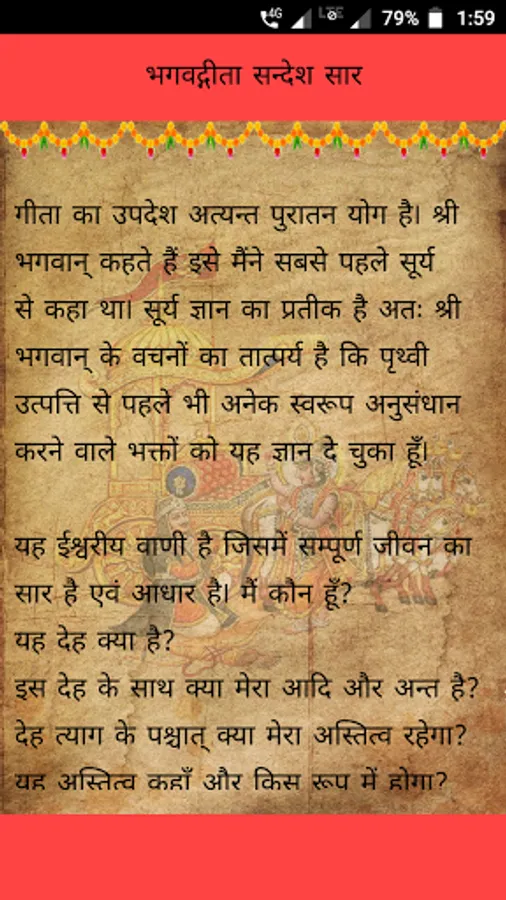 4G LTE 79% 1:59
भगवद्गीता सन्देश सार
गीता का उपदेश अत्यन्त पुरातन योग है। श्री
भगवान् कहते हैं इसे मैंने सबसे पहले सूर्य
से कहा था। सूर्य ज्ञान का प्रतीक है अतः श्री
भगवान् के वचनों का तात्पर्य है कि पृथ्वी
उत्पत्ति से पहले भी अनेक स्वरूप अनुसंधान
करने वाले भक्तों को यह ज्ञान दे चुका हूँ।
यह ईश्वरीय वाणी है जिसमें सम्पूर्ण जीवन का
सार है एवं आधार है। मैं कौन हूँ?
यह देह क्या है?
इस देह के साथ क्या मेरा आदि और अन्त है?
देह त्याग के पश्चात् क्या मेरा अस्तित्व रहेगा?
यह अस्तित्व कहाँ और किस रूप में होगा?